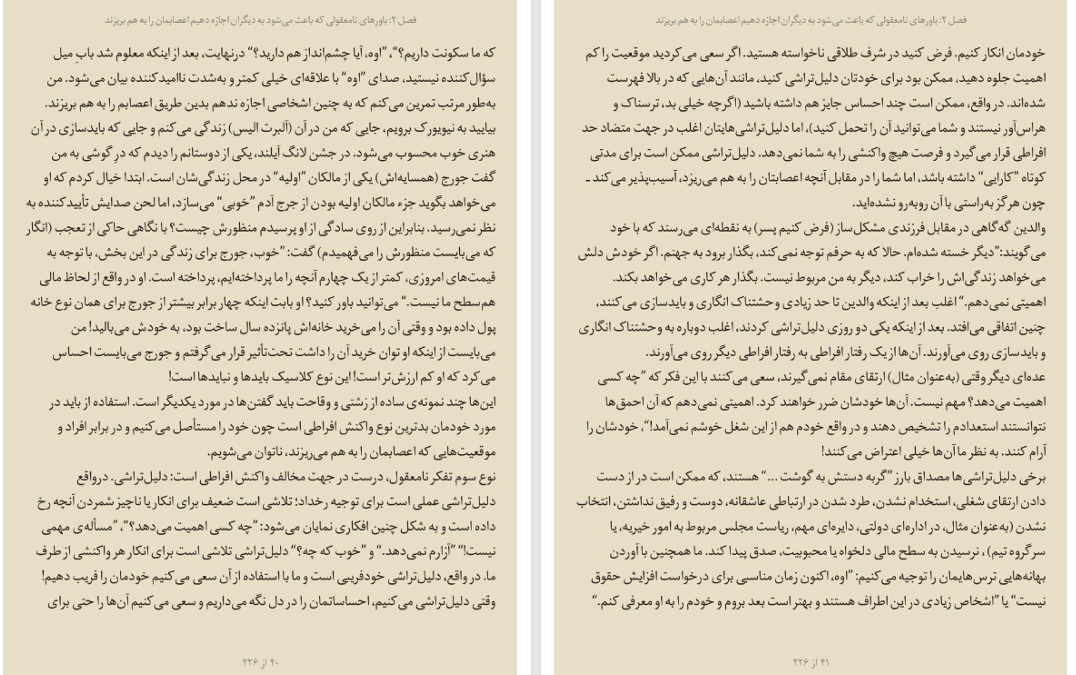 فصل ۲: باورهای نامعقولی که باعث می‌شود به دیگران اجازه دهیم اعصابمان را به هم بریزند
که ما سکونت داریم؟“، ”اوه، آیا چشم‌انداز هم دارید؟“ درنهایت، بعد از اینکه معلوم شد بابِ میل
سؤال‌کننده نیستید، صدای ”اوه“ با علاقه‌ای خیلی کمتر و به‌شدت ناامیدکننده بیان می‌شود. من
به‌طور مرتب تمرین می‌کنم که به چنین اشخاصی اجازه ندهم بدین طریق اعصابم را به هم بریزند.
بیایید به نیویورک برویم، جایی که من در آن (آلبرت الیس) زندگی می‌کنم و جایی که بایدسازی در آن
هنری خوب محسوب می‌شود. در جشن لانگ آیلند، یکی از دوستانم را دیدم که درِ گوشی به من
گفت جورج (همسایه‌اش) یکی از مالکان ”اولیه“ در محل زندگی‌شان است. ابتدا خیال کردم که او
می‌خواهد بگوید جزء مالکان اولیه بودن از جرج آدم ”خوبی“ می‌سازد، اما لحن صدایش تأییدکننده به
نظر نمی‌رسید. بنابراین از روی سادگی از او پرسیدم منظورش چیست؟ با نگاهی حاکی از تعجب (انگار
که می‌بایست منظورش را می‌فهمیدم) گفت: ”خوب، جورج برای زندگی در این بخش، با توجه به
قیمت‌های امروزی، کمتر از یک چهارم آنچه را ما پرداخته‌ایم، پرداخته است. او در واقع از لحاظ مالی
هم‌سطح ما نیست.“ می‌توانید باور کنید؟ او بابت اینکه چهار برابر بیشتر از جورج برای همان نوع خانه
پول داده بود و وقتی آن را می‌خرید خانه‌اش پانزده سال ساخت بود، به خودش می‌بالید! من
می‌بایست از اینکه او توان خرید آن را داشت تحت‌تأثیر قرار می‌گرفتم و جورج می‌بایست احساس
می‌کرد که او کم ارزش‌تر است! این نوع کلاسیک بایدها و نبایدها است!
این‌ها چند نمونه‌ی ساده از زشتی و وقاحت باید گفتن‌ها در مورد یکدیگر است. استفاده از باید در
مورد خودمان بدترین نوع واکنش افراطی است چون خود را مستأصل می‌کنیم و در برابر افراد و
موقعیت‌هایی که اعصابمان را به هم می‌ریزند، ناتوان می‌شویم.
نوع سوم تفکر نامعقول، درست در جهت مخالف واکنش افراطی است: دلیل‌تراشی. درواقع
دلیل‌تراشی عملی است برای توجیه رخداد؛ تلاشی است ضعیف برای انکار یا ناچیز شمردن آنچه رخ
داده است و به شکل چنین افکاری نمایان می‌شود: ”چه کسی اهمیت می‌دهد؟“، ”مسأله‌ی مهمی
نیست!“ ”آزارم نمی‌دهد.“ و ”خوب که چه؟“ دلیل‌تراشی تلاشی است برای انکار هر واکنشی از طرف
ما. در واقع، دلیل‌تراشی خودفریبی است و ما با استفاده از آن سعی می‌کنیم خودمان را فریب دهیم!
وقتی دلیل‌تراشی می‌کنیم، احساساتمان را در دل نگه می‌داریم و سعی می‌کنیم آن‌ها را حتی برای
۴۰ از ۲۲۶
فصل ۲: باورهای نامعقولی که باعث می‌شود به دیگران اجازه دهیم اعصابمان را به هم بریزند
خودمان انکار کنیم. فرض کنید در شرف طلاقی ناخواسته هستید. اگر سعی می‌کردید موقعیت را کم
اهمیت جلوه دهید، ممکن بود برای خودتان دلیل‌تراشی کنید، مانند آن‌هایی که در بالا فهرست
شده‌اند. در واقع، ممکن است چند احساس جایز هم داشته باشید (اگرچه خیلی بد، ترسناک و
هراس‌آور نیستند و شما می‌توانید آن را تحمل کنید)، اما دلیل‌تراشی‌هایتان اغلب در جهت متضاد حد
افراطی قرار می‌گیرد و فرصت هیچ واکنشی را به شما نمی‌دهد. دلیل‌تراشی ممکن است برای مدتی
کوتاه ”کارایی“ داشته باشد، اما شما را در مقابل آنچه اعصابتان را به هم می‌ریزد، آسیب‌پذیر می‌کند ـ
چون هرگز به‌راستی با آن روبه‌رو نشده‌اید.
والدین گه‌گاهی در مقابل فرزندی مشکل‌ساز (فرض کنیم پسر) به نقطه‌ای می‌رسند که با خود
می‌گویند:”دیگر خسته شده‌ام. حالا که به حرفم توجه نمی‌کند، بگذار برود به جهنم. اگر خودش دلش
می‌خواهد زندگی‌اش را خراب کند، دیگر به من مربوط نیست. بگذار هر کاری می‌خواهد بکند.
اهمیتی نمی‌دهم.“ اغلب بعد از اینکه والدین تا حد زیادی وحشتناک انگاری و بایدسازی می‌کنند،
چنین اتفاقی می‌افتد. بعد از اینکه یکی دو روزی دلیل‌تراشی کردند، اغلب دوباره به وحشتناک انگاری
و بایدسازی روی می‌آورند. آن‌ها از یک رفتار افراطی به رفتار افراطی دیگر روی می‌آورند.
عده‌ای دیگر وقتی (به‌عنوان مثال) ارتقای مقام نمی‌گیرند، سعی می‌کنند با این فکر که ”چه کسی
اهمیت می‌دهد؟ مهم نیست. آن‌ها خودشان ضرر خواهند کرد. اهمیتی نمی‌دهم که آن احمق‌ها
نتوانستند استعدادم را تشخیص دهند و در واقع خودم هم از این شغل خوشم نمی‌آمد!“، خودشان را
آرام کنند. به نظر ما آن‌ها خیلی اعتراض می‌کنند!
برخی دلیل‌تراشی‌ها مصداق بارز ”گربه دستش به گوشت ...“ هستند، که ممکن است در از دست
دادن ارتقای شغلی، استخدام نشدن، طرد شدن در ارتباطی عاشقانه، دوست و رفیق نداشتن، انتخاب
نشدن (به‌عنوان مثال، در اداره‌ای دولتی، دایره‌ای مهم، ریاست مجلس مربوط به امور خیریه، یا
سرگروه تیم)، نرسیدن به سطح مالی دلخواه یا محبوبیت، صدق پیدا کند. ما همچنین با آوردن
بهانه‌هایی ترس‌هایمان را توجیه می‌کنیم: ”اوه، اکنون زمان مناسبی برای درخواست افزایش حقوق
نیست“ یا ”اشخاص زیادی در این اطراف هستند و بهتر است بعد بروم و خودم را به او معرفی کنم.“
۴۱ از ۲۲۶